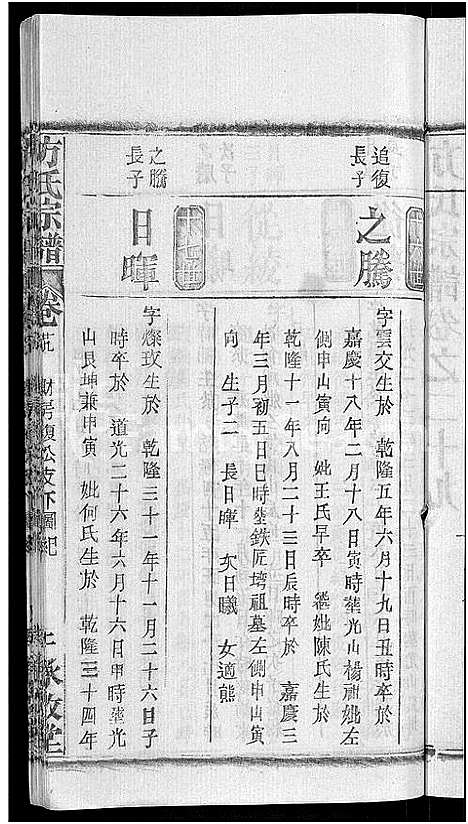 追復
長子
之騰
字雲交生於 乾隆五年六月十九日丑時卒於
嘉慶十八年二月十八日寅時塟光山楊祖妣左
側申山寅向 妣王氏早卒 繼妣陳氏生於
乾隆十一年八月二十三日辰時卒於 嘉慶三
年三月初五日巳時塟鉄匠塆祖墓左側申山寅
向 生子二 長日暉 次日曦 女適熊
之騰
長子
日暉
字燦玫生於 乾隆三十一年十一月二十六日子
時卒於 道光二十六年六月十六日申時塟光
山艮坤兼申寅 妣何氏生於 乾隆三十四年
方氏宗譜
卷
財房復公支下圖紀
敦堂